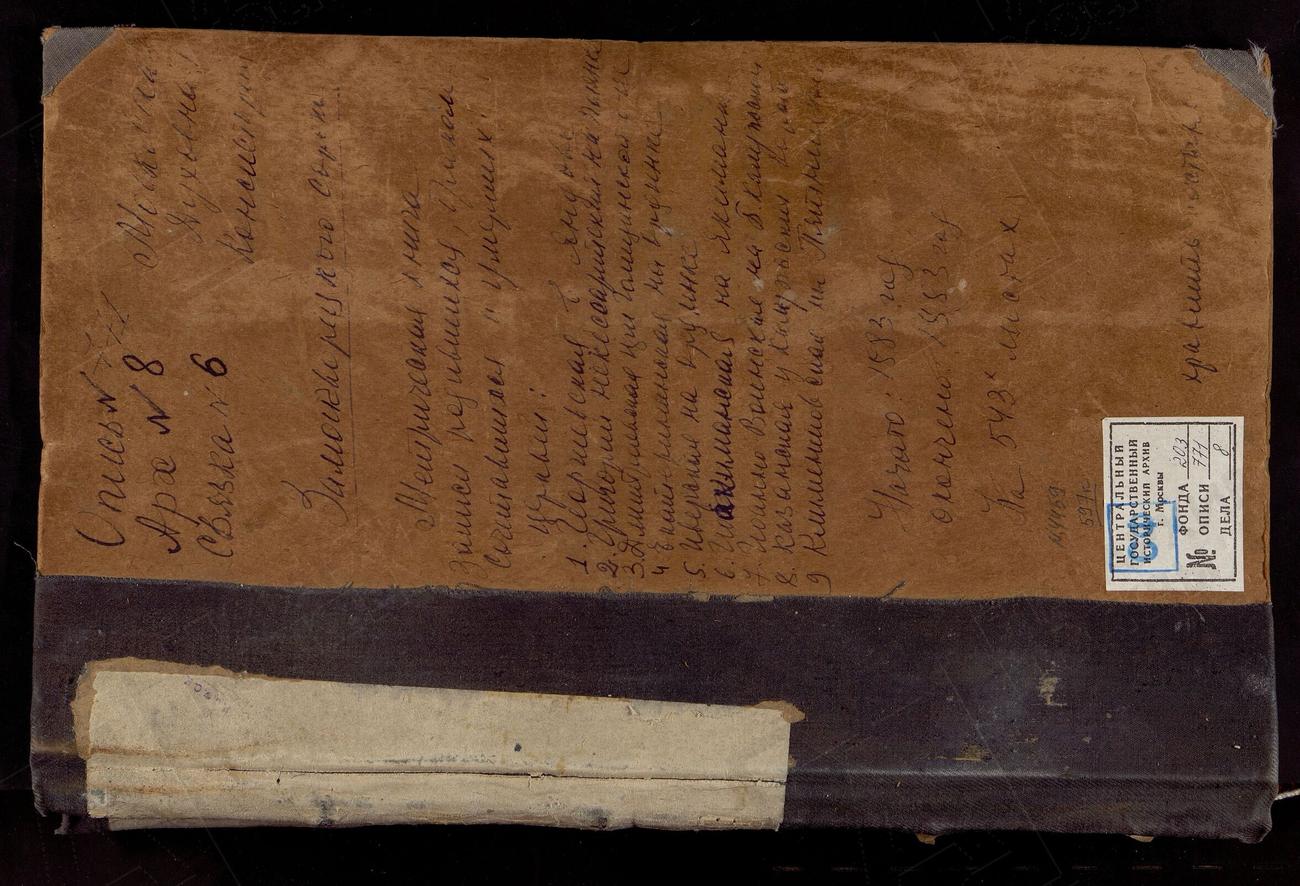 Опись №
Арх № 8
Связка № 6
Московская
Духовная
Консистория
Замоскворецкого сорока
Метрическая книга
записи родившихся, браком
сочетавшихся и умерших
Церквей:
1. Георгиевская в Ендове
2. Григория Неокесарийский на Полянке
3. Дмитриевская при Голицинской б-це
4 Екатерининская на Ордынке
5. Иверская на Ордынке
6. Иоакиманская на Якиманке
7 Иоанно Воинская на Б Калужской
8. Казанская у Калужских ворот
9 Климентовская на Пятницкой
Начато: 1883 год
Окончено 1883 год
На 543х листах
хранить постоян.
ЦЕНТРАЛЬНЫЙ
ГОСУДАРСТВЕННЫЙ
ИСТОРИЧЕСКИЙ АРХИВ
г. Москвы
№
ФОНДА 203
ОПИСИ 771
ДЕЛА 8